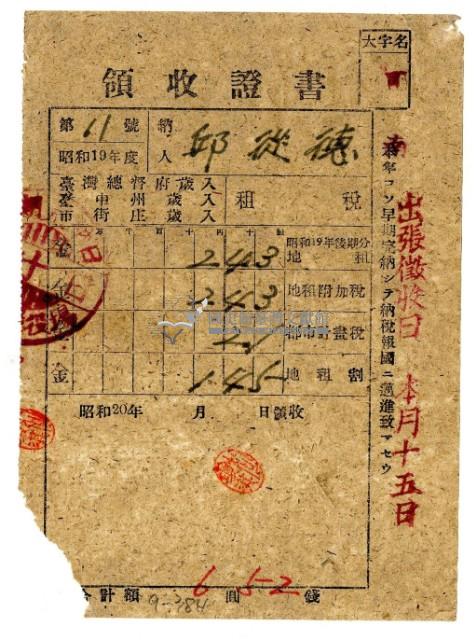 大字名
領收證書
第 11 號
納人 邱從德
昭和19年度
臺灣總督府歲入
臺中州歲入
市街庄歲入
租稅
昭和19年後期分
地租
2.43
地租附加稅
2.43
都市計畫稅
金
地租割
1.45
昭和20年 月 日領收
合計額 6 圓 52 錢
9-384
早期完納シテ納稅報國ニ邁進致マセウ
出張徵收日 本月十五日